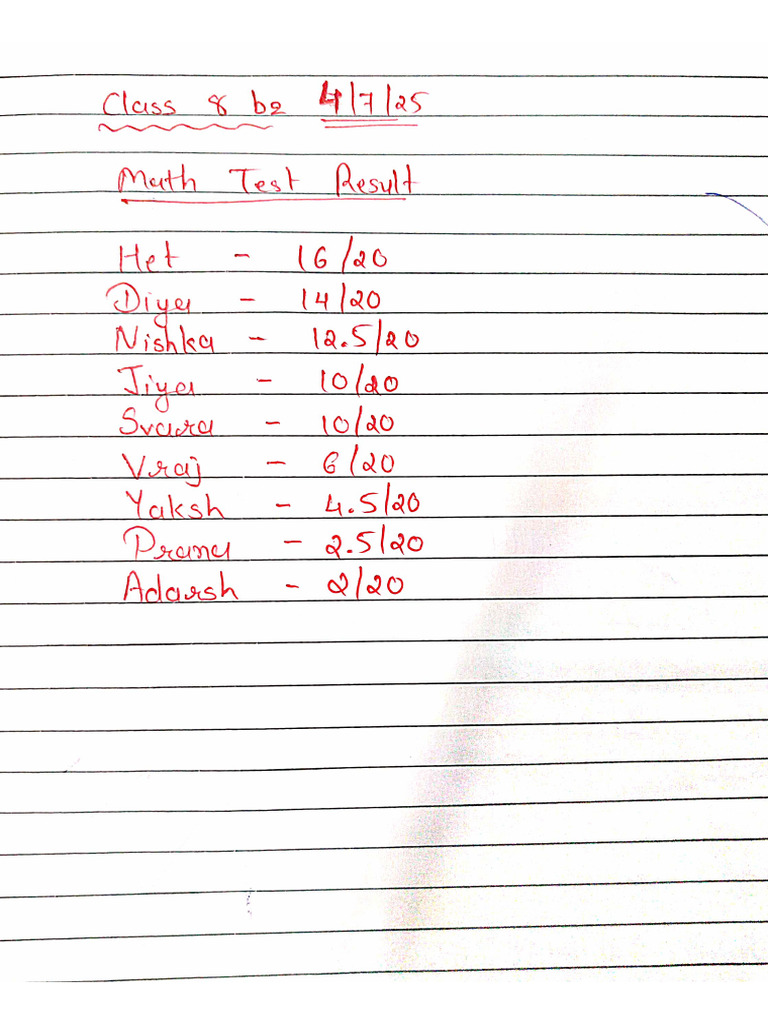 Class 8 b2 4/7/25
Math Test Result
Het - 16/20
Diya - 14/20
Nishka - 12.5/20
Jiya - 10/20
Svara - 10/20
Vraj - 6/20
Yaksh - 4.5/20
Prana - 2.5/20
Adarsh - 2/20